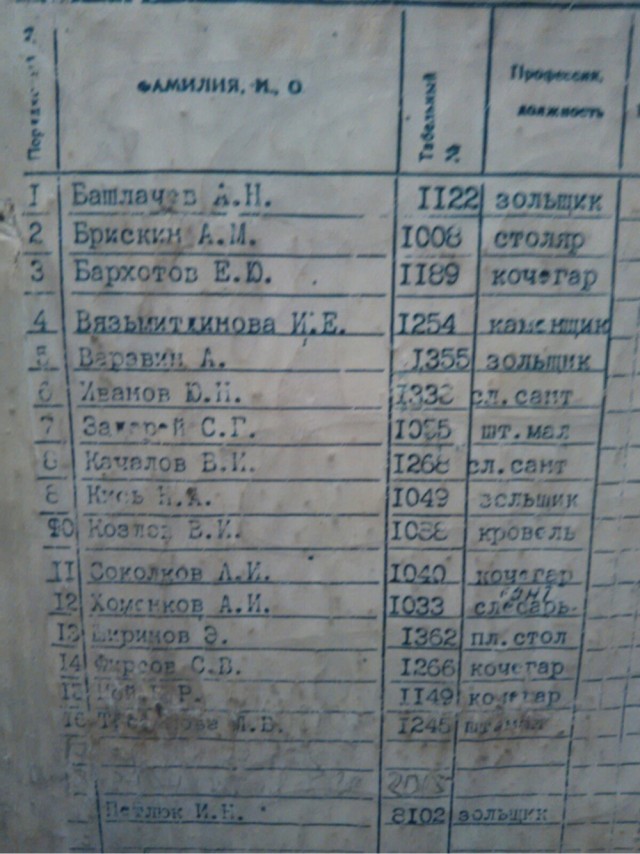 Порядковый №
ФАМИЛИЯ, И., О.
Табельный №
Профессия, должность
1 Башлачев А.Н. 1122 зольщик
2 Брискин А.М. 1008 столяр
3 Бархотов Е.Ю. 1189 кочегар
4 Вязьмитинова И.Е. 1254 каменщик
5 Варавин А. 1355 зольщик
6 Иванов Ю.Н. сл.сант
7 С.Г. шт.мал
8 Качалов В.И. 1268 сл.сант
8 Кись 1049 зольщик
10 Козлов В.И. кровель
11 Соколков А.И. 1040 кочегар
12 Хоменков А.И. 1033 слесарь сант
13 Ширинов Э. 1362 пл.стол
14 Фирсов С.В. 1266 кочегар
15 1149 кочегар
16 1245
Петлюк И.Н. 8102 зольщик